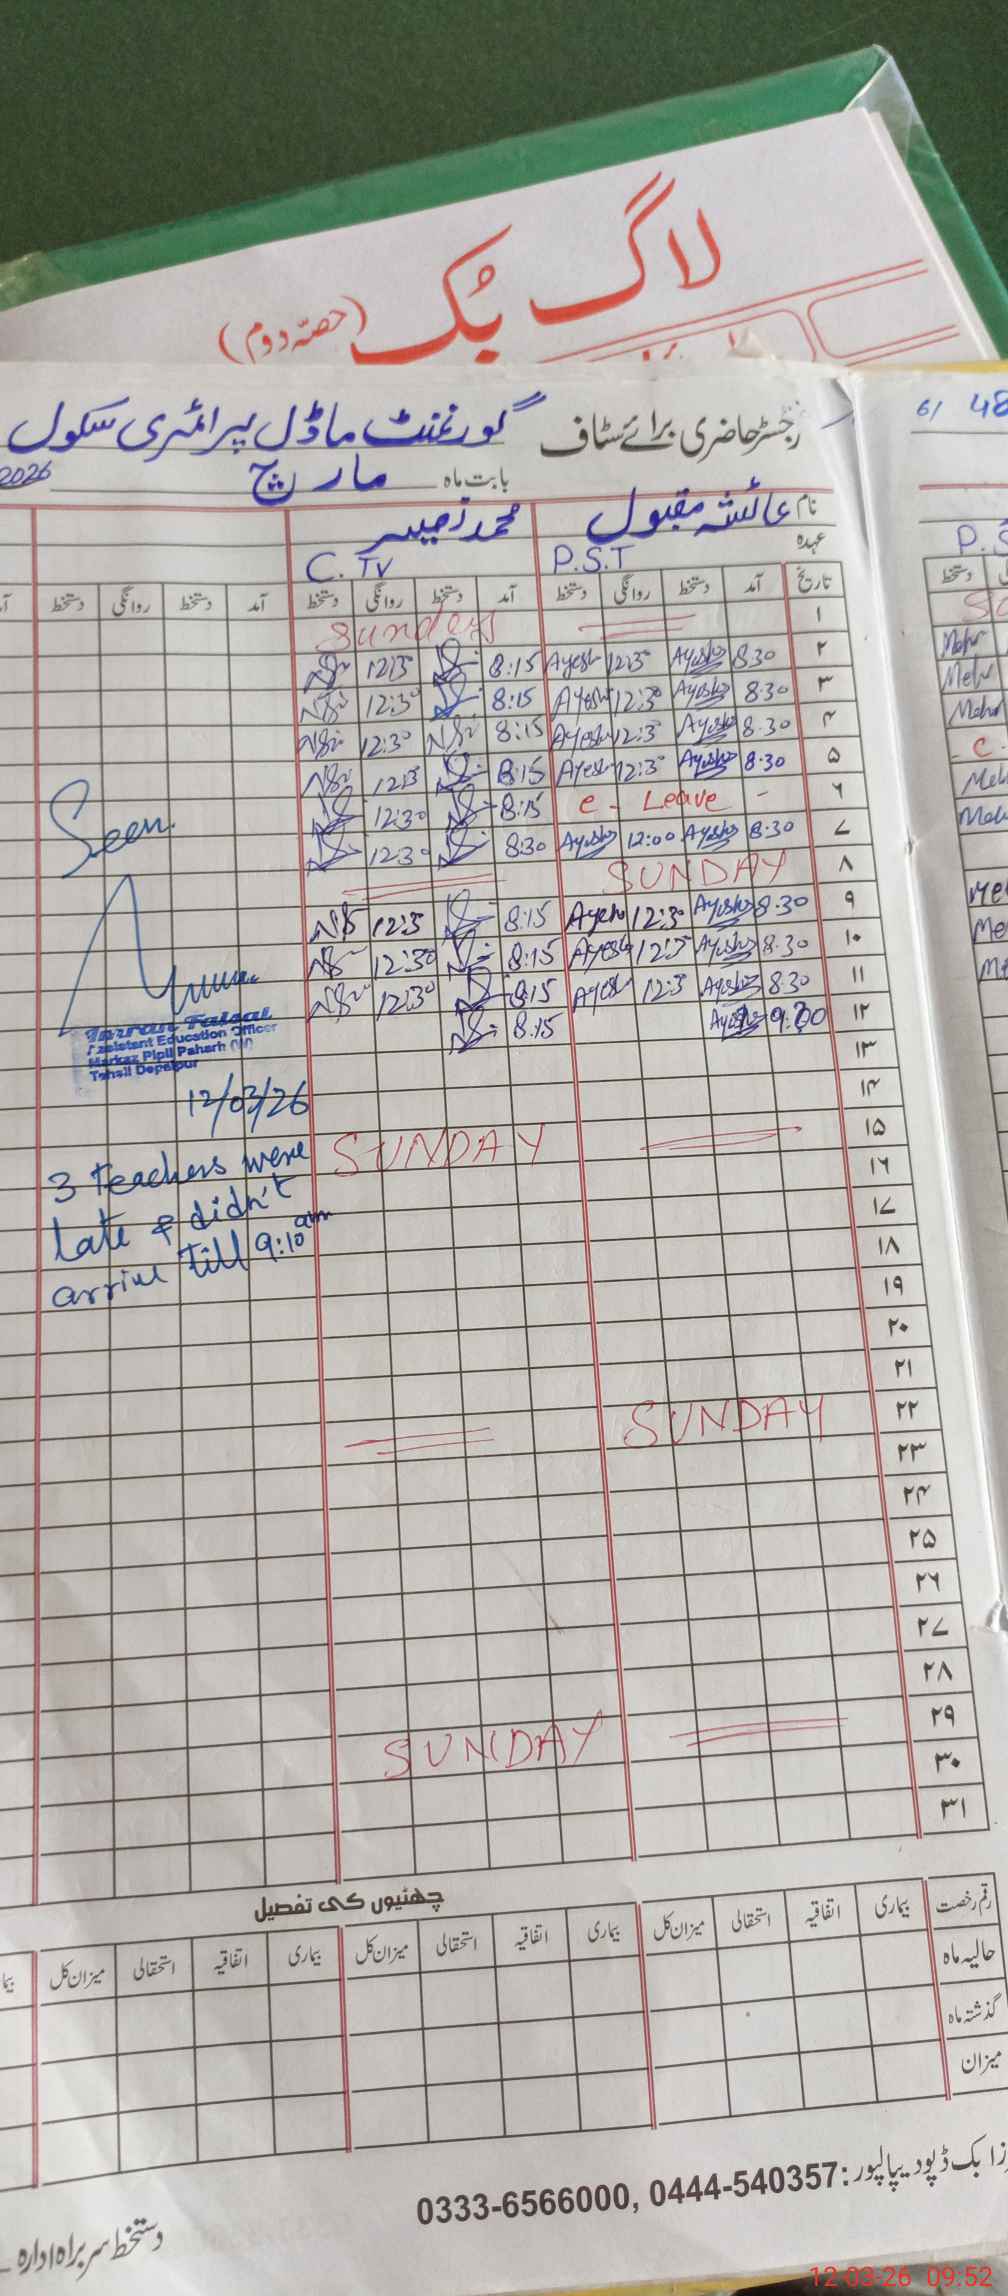 لاگ بُک
(حصّہ دوم)
رجسٹر حاضری برائے سٹاف گورنمنٹ ماڈل پرائمری سکول
بابت ماہ مارچ 2026
6/ 48
نام عائشہ مقبول محمد زبیر
عہدہ P.S.T C. TV
تاریخ آمد دستخط روانگی دستخط آمد دستخط روانگی دستخط آمد دستخط روانگی دستخط
۱ Sunday
۲ 8:30 Ayesha 12:3 Ayesh 8:15 12:3
۳ 8:30 Ayesha 12:30 Ayesh 8:15 12:30
۴ 8:30 Ayesha 12:3 Ayesh 8:15 12:30
۵ 8:30 Ayesha 12:3 Ayesh 8:15 12:3
۶ e - Leave - 8:15 12:30
۷ 8:30 Ayesha 12:00 Ayesha 8:30 12:30
۸ SUNDAY
۹ 8:30 Ayesha 12:30 Ayesh 8:15 12:3
۱۰ 8:30 Ayesha 12:3 Ayesh 8:15 12:30
۱۱ 8:30 Ayesha 12:3 Ayesh 8:15 12:30
۱۲ 8:15
۱۳
۱۴
۱۵ SUNDAY
۱۶
۱۷
۱۸
۱۹
۲۰
۲۱
۲۲ SUNDAY
۲۳
۲۴
۲۵
۲۶
۲۷
۲۸
۲۹ SUNDAY
۳۰
۳۱
Seen.
Imran Faisal
Assistant Education Officer
Markaz Pipli Paharh
Tehsil Depalpur
12/03/26
3 teachers were
late & didn't
arrive till 9:10 am
چھٹیوں کی تفصیل
رقم رخصت بیماری اتفاقیہ استحقاقی میزان کل بیماری اتفاقیہ استحقاقی میزان کل بیماری اتفاقیہ استحقاقی میزان کل
حالیہ ماہ
گذشتہ ماہ
میزان
بک ڈپو دیپالپور: 0333-6566000, 0444-540357
دستخط سربراہ ادارہ
12-03-26 09:52